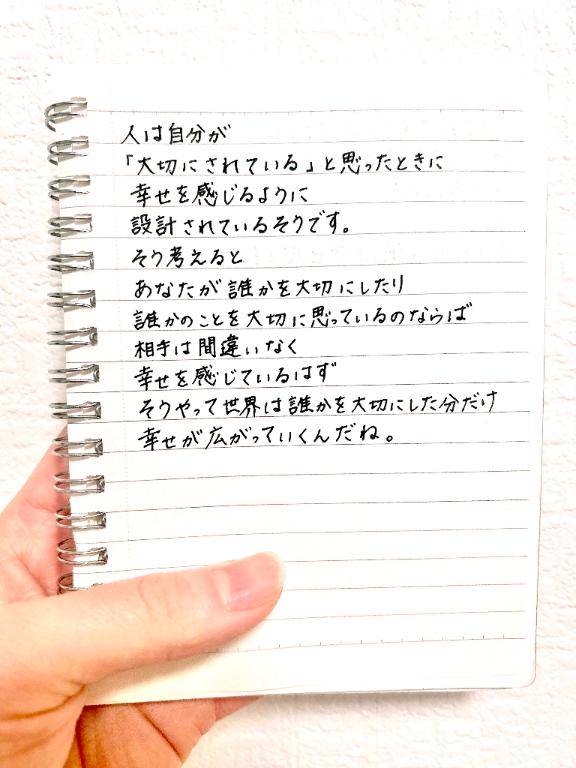 人は自分が
「大切にされている」と思ったときに
幸せを感じるように
設計されているそうです。
そう考えると
あなたが誰かを大切にしたり
誰かのことを大切に思っているのならば
相手は間違いなく
幸せを感じているはず
そうやって世界は誰かを大切にした分だけ
幸せが広がっていくんだね。